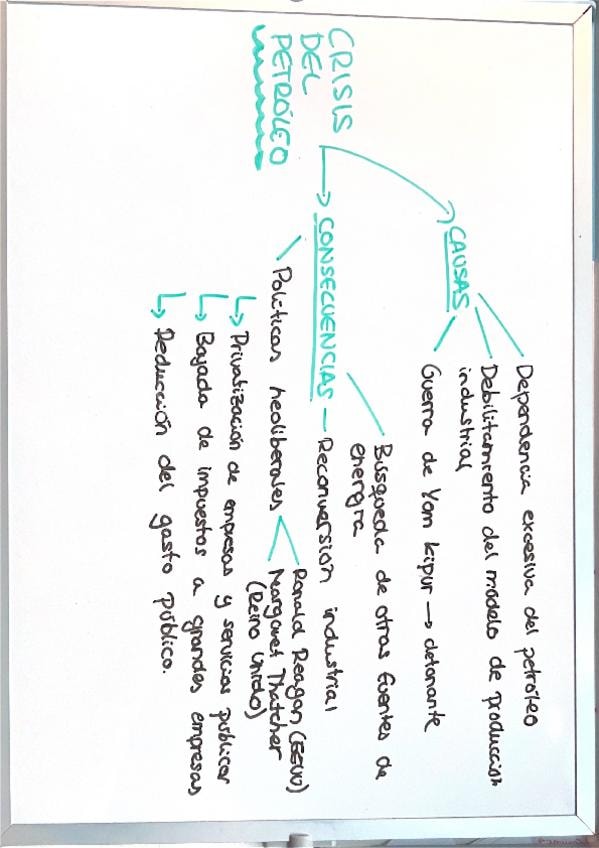 CRISIS
DEL
PETRÓLEO
CAUSAS
Dependencia excesiva del petróleo
Debilitamiento del modelo de producción
industrial
Guerra de Yom Kipur → detonante
CONSECUENCIAS
Búsqueda de otras fuentes de
energía
Reconversión industrial
Políticas neoliberales
Ronald Reagan (EEUU)
Margaret Thatcher
(Reino Unido)
↳ Privatización de empresas y servicios públicos
↳ Bajada de impuestos a grandes empresas
↳ Reducción del gasto público.